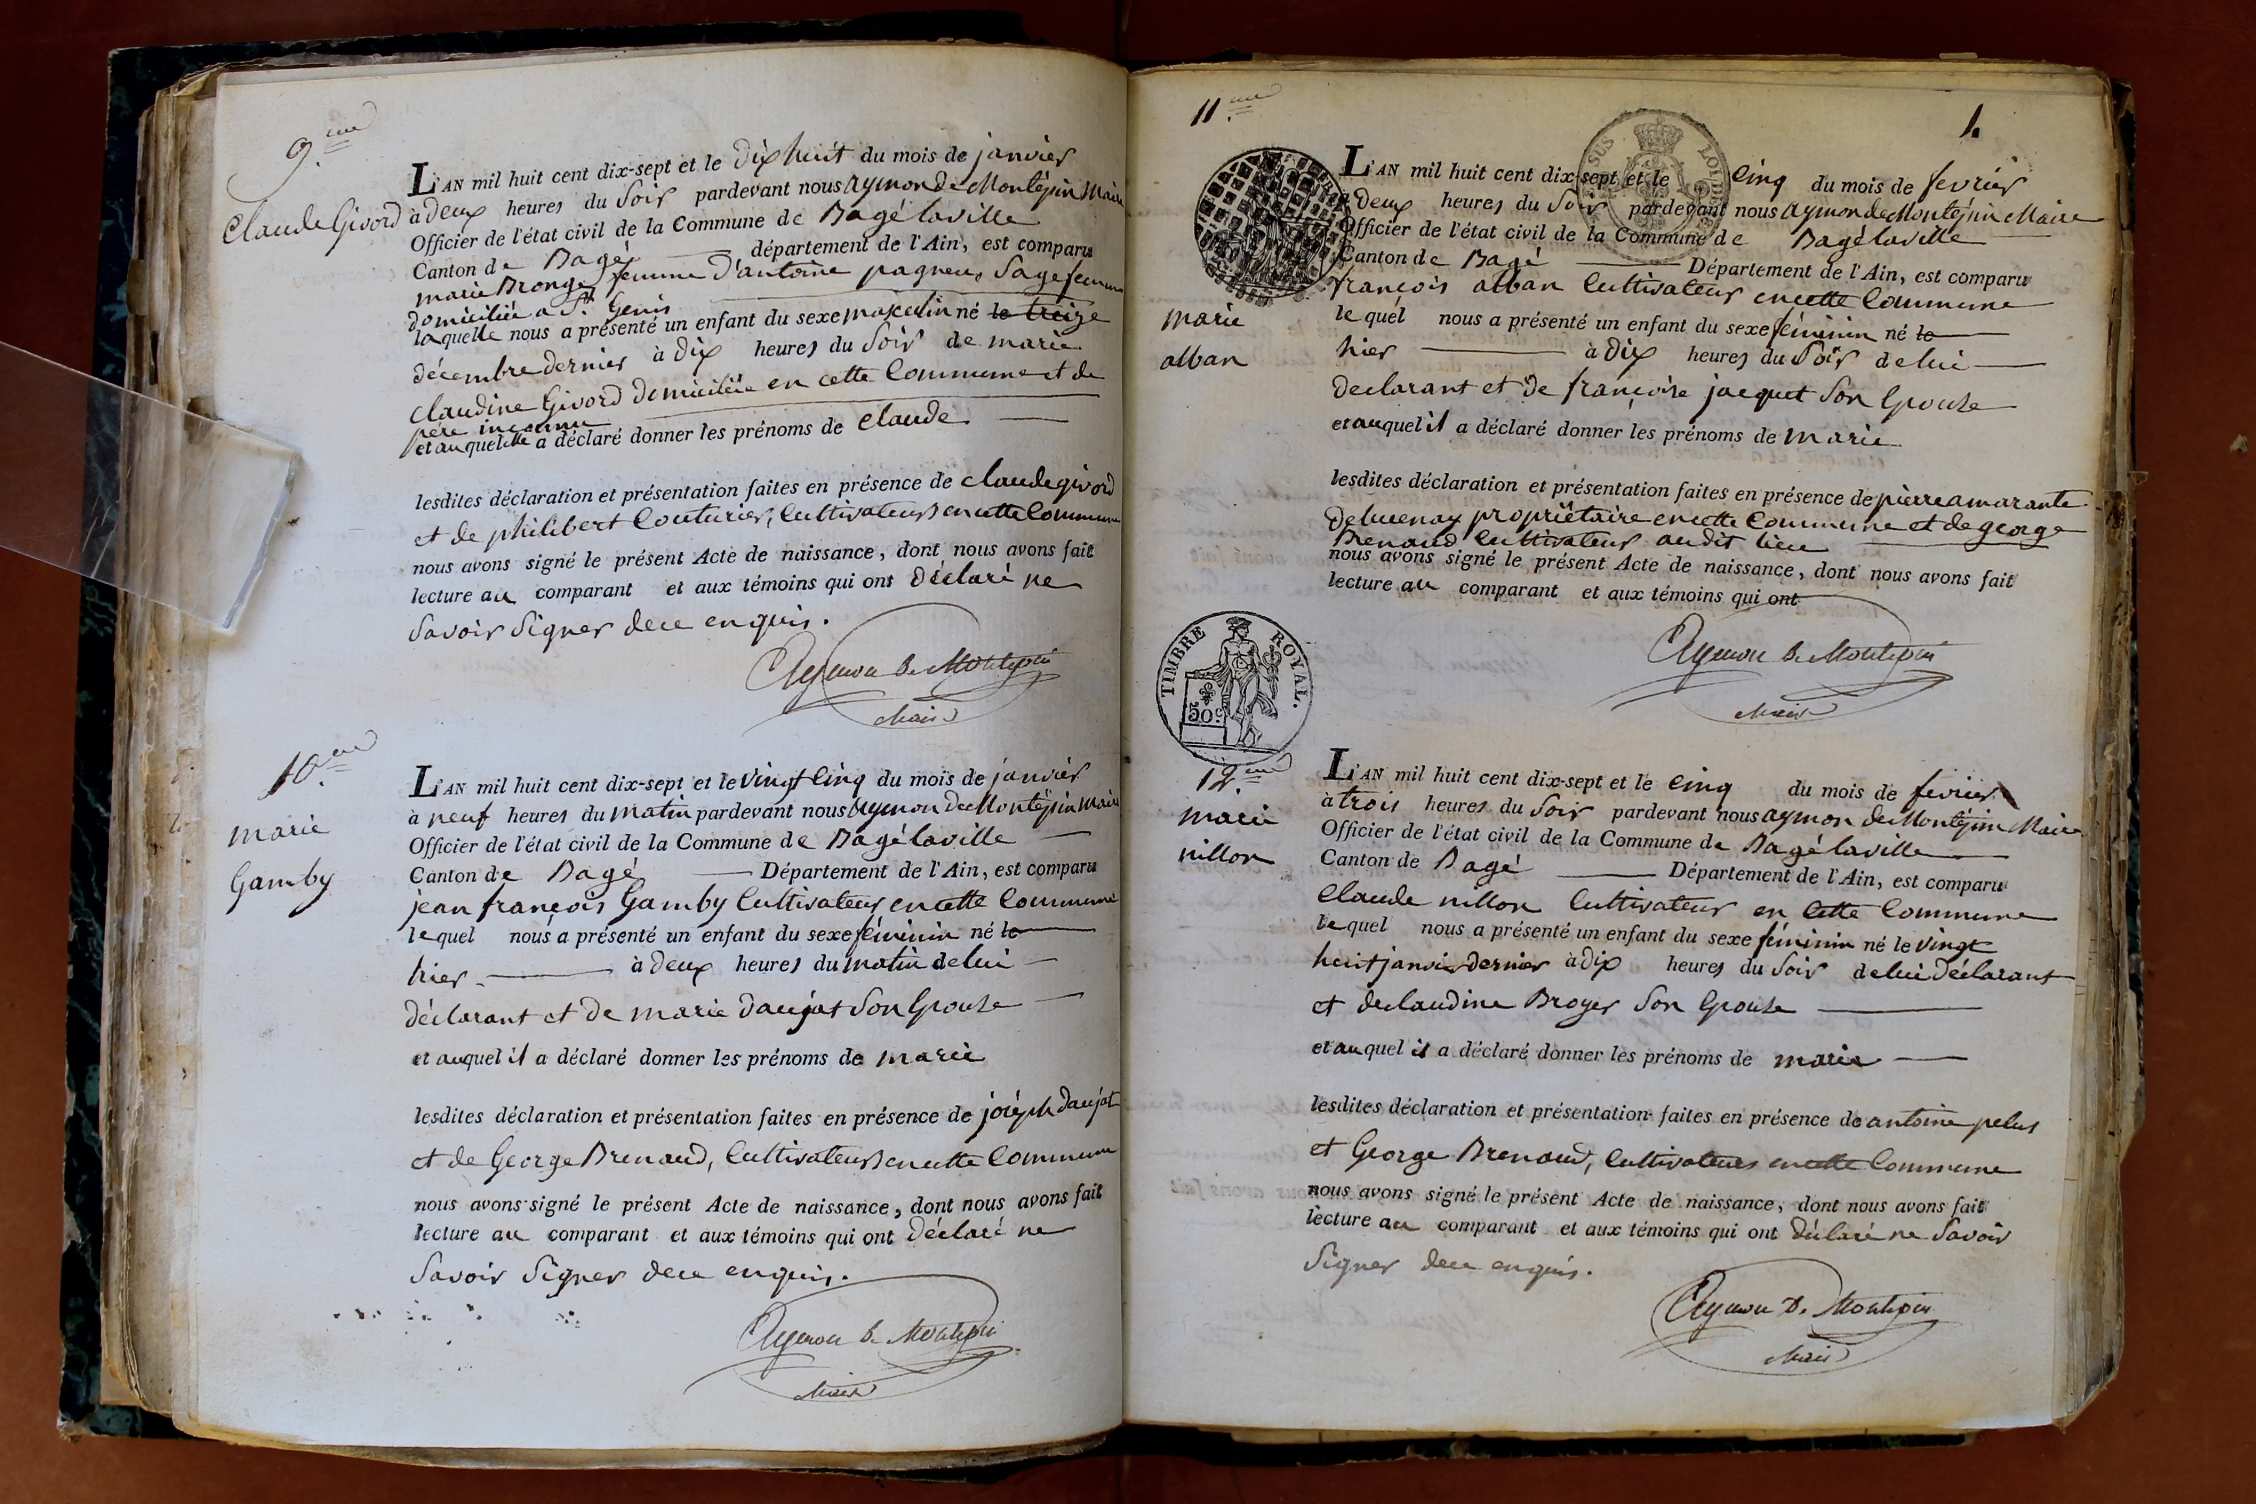 9.me
Claude Givord
L'AN mil huit cent dix-sept et le dix huit du mois de janvier
à deux heures du soir pardevant nous aymon de Montépin Maire
Officier de l'état civil de la Commune de Bagé laville
Canton de Bagé département de l'Ain, est comparu
marie Bronge femme d'antoine pagneux Sage femme
domiciliée a St. Genis
laquelle nous a présenté un enfant du sexe masculin né le treize
décembre dernier à dix heures du soir de marie
claudine Givord domiciliée en cette Commune et de
père inconnu
et auquel elle a déclaré donner les prénoms de claude
lesdites déclaration et présentation faites en présence de claude givord
et de philibert Couturier, Cultivateurs en cette Commune
nous avons signé le présent Acte de naissance, dont nous avons fait
lecture au comparant et aux témoins qui ont déclaré ne
Savoir Signer de ce enquis.
Aymon de Montepin
Maire
10.me
marie
Gamby
L'AN mil huit cent dix-sept et le vingt cinq du mois de janvier
à neuf heures du matin pardevant nous Aymon de Montépin Maire
Officier de l'état civil de la Commune de Bagé laville
Canton de Bagé Département de l'Ain, est comparu
jean françois Gamby Cultivateur en cette Commune
lequel nous a présenté un enfant du sexe féminin né le
hier à deux heures du matin de lui
déclarant et de marie daujat Son Epouse
et auquel il a déclaré donner les prénoms de marie
lesdites déclaration et présentation faites en présence de joséph daujat
et de George Brenaud, Cultivateurs en cette Commune
nous avons signé le présent Acte de naissance, dont nous avons fait
lecture au comparant et aux témoins qui ont déclaré ne
Savoir Signer de ce enquis.
Aymon de Montepin
Maire
11.me
1.
marie
alban
L'AN mil huit cent dix-sept et le cinq du mois de fevrier
à deux heures du Soir pardevant nous aymon de Montépin Maire
Officier de l'état civil de la Commune de Bagé laville
Canton de Bagé Département de l'Ain, est comparu
françois alban Cultivateur en cette Commune
lequel nous a présenté un enfant du sexe féminin né le
hier à dix heures du Soir de lui
declarant et de françoise jacquet Son Epouse
et auquel il a déclaré donner les prénoms de marie
lesdites déclaration et présentation faites en présence de pierre amarante
delucenay propriétaire en cette Commune et de george
Brenaud Cultivateur audit lieu
nous avons signé le présent Acte de naissance, dont nous avons fait
lecture au comparant et aux témoins qui ont
Aymon de Montepin
Maire
TIMBRE ROYAL.
50c
12.me
marie
nillon
L'AN mil huit cent dix-sept et le cinq du mois de fevrier
à trois heures du Soir pardevant nous aymon de Montépin Maire
Officier de l'état civil de la Commune de Bagé laville
Canton de Bagé Département de l'Ain, est comparu
Claude nillon Cultivateur en cette Commune
lequel nous a présenté un enfant du sexe féminin né le vingt
huit janvier dernier à dix heures du Soir de lui déclarant
et de claudine Broyer Son Epouse
et auquel il a déclaré donner les prénoms de marie
lesdites déclaration et présentation faites en présence de antoine pelus
et George Brenaud, Cultivateurs en cette Commune
nous avons signé le présent Acte de naissance, dont nous avons fait
lecture au comparant et aux témoins qui ont déclaré ne Savoir
Signer de ce enquis.
Aymon de Montepin
Maire